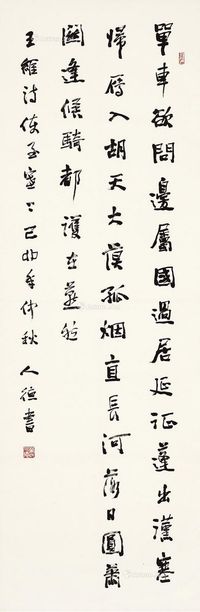 單車欲問邊屬國過居延征蓬出漢塞
歸雁入胡天大漠孤烟直長河落日圓蕭
關逢候騎都護在燕然
王維詩使至塞上己卯年仲秋人德書